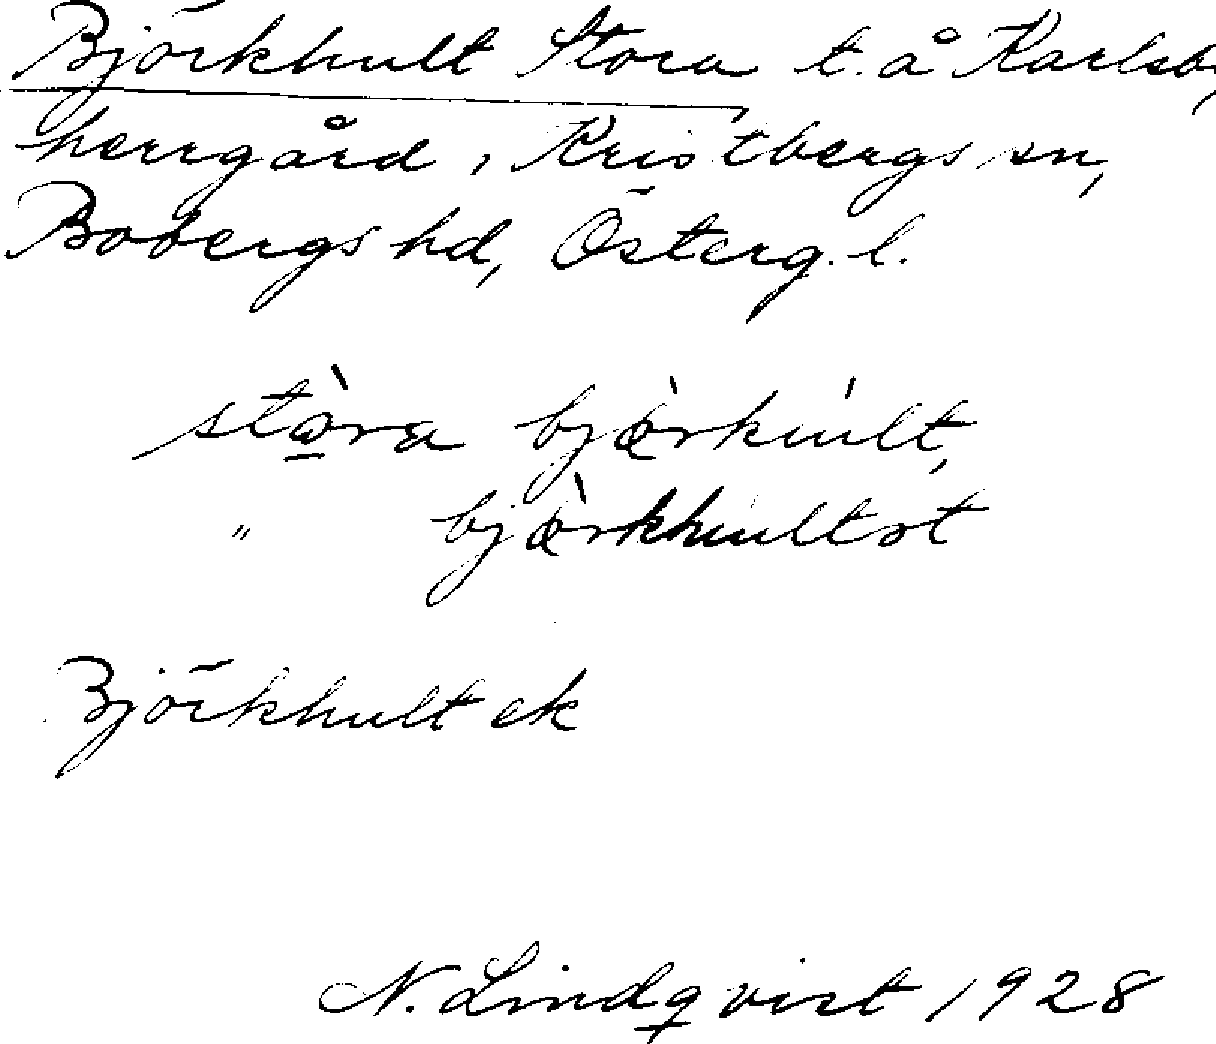 Björkhult Stora t. å Karlsby
herrgård, Kristbergs sn,
Bobergs hd, Österg. l.
stɷ̀ra bjœ̀rkúlt,
" bjœ̀rkhultət
Björkhult ek
N. Lindqvist 1928